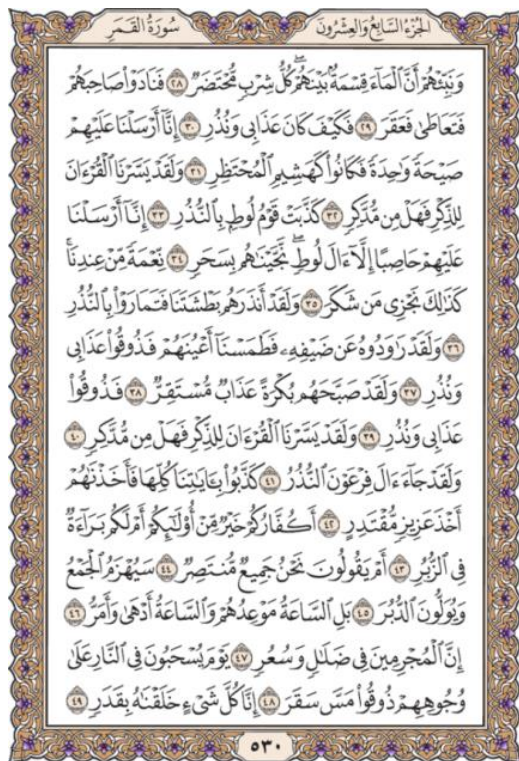 الجُزْءُ السَّابِعُ وَالعِشْرُونَ
سُورَةُ القَمَرِ
وَنَبِّئْهُمْ أَنَّ ٱلْمَآءَ قِسْمَةٌۢ بَيْنَهُمْ ۖ كُلُّ شِرْبٍ مُّحْتَضَرٌ ٢٨ فَنَادَوْا۟ صَاحِبَهُمْ
فَتَعَاطَىٰ فَعَقَرَ ٢٩ فَكَيْفَ كَانَ عَذَابِى وَنُذُرِ ٣٠ إِنَّآ أَرْسَلْنَا عَلَيْهِمْ
صَيْحَةً وَٰحِدَةً فَكَانُوا۟ كَهَشِيمِ ٱلْمُحْتَظِرِ ٣١ وَلَقَدْ يَسَّرْنَا ٱلْقُرْءَانَ
لِلذِّكْرِ فَهَلْ مِن مُّدَّكِرٍ ٣٢ كَذَّبَتْ قَوْمُ لُوطٍۭ بِٱلنُّذُرِ ٣٣ إِنَّآ أَرْسَلْنَا
عَلَيْهِمْ حَاصِبًا إِلَّآ ءَالَ لُوطٍ ۖ نَّجَّيْنَٰهُم بِسَحَرٍ ٣٤ نِّعْمَةً مِّنْ عِندِنَا ۚ
كَذَٰلِكَ نَجْزِى مَن شَكَرَ ٣٥ وَلَقَدْ أَنذَرَهُم بَطْشَتَنَا فَتَمَارَوْا۟ بِٱلنُّذُرِ
٣٦ وَلَقَدْ رَٰوَدُوهُ عَن ضَيْفِهِۦ فَطَمَسْنَآ أَعْيُنَهُمْ فَذُوقُوا۟ عَذَابِى
وَنُذُرِ ٣٧ وَلَقَدْ صَبَّحَهُم بُكْرَةً عَذَابٌ مُّسْتَقِرٌّ ٣٨ فَذُوقُوا۟
عَذَابِى وَنُذُرِ ٣٩ وَلَقَدْ يَسَّرْنَا ٱلْقُرْءَانَ لِلذِّكْرِ فَهَلْ مِن مُّدَّكِرٍ ٤٠
وَلَقَدْ جَآءَ ءَالَ فِرْعَوْنَ ٱلنُّذُرُ ٤١ كَذَّبُوا۟ بِـَٔايَٰتِنَا كُلِّهَا فَأَخَذْنَٰهُمْ
أَخْذَ عَزِيزٍ مُّقْتَدِرٍ ٤٢ أَكُفَّارُكُمْ خَيْرٌ مِّنْ أُو۟لَٰٓئِكُمْ أَمْ لَكُم بَرَآءَةٌ
فِى ٱلزُّبُرِ ٤٣ أَمْ يَقُولُونَ نَحْنُ جَمِيعٌ مُّنتَصِرٌ ٤٤ سَيُهْزَمُ ٱلْجَمْعُ
وَيُوَلُّونَ ٱلدُّبُرَ ٤٥ بَلِ ٱلسَّاعَةُ مَوْعِدُهُمْ وَٱلسَّاعَةُ أَدْهَىٰ وَأَمَرُّ ٤٦
إِنَّ ٱلْمُجْرِمِينَ فِى ضَلَٰلٍ وَسُعُرٍ ٤٧ يَوْمَ يُسْحَبُونَ فِى ٱلنَّارِ عَلَىٰ
وُجُوهِهِمْ ذُوقُوا۟ مَسَّ سَقَرَ ٤٨ إِنَّا كُلَّ شَىْءٍ خَلَقْنَٰهُ بِقَدَرٍ ٤٩
٥٣٠